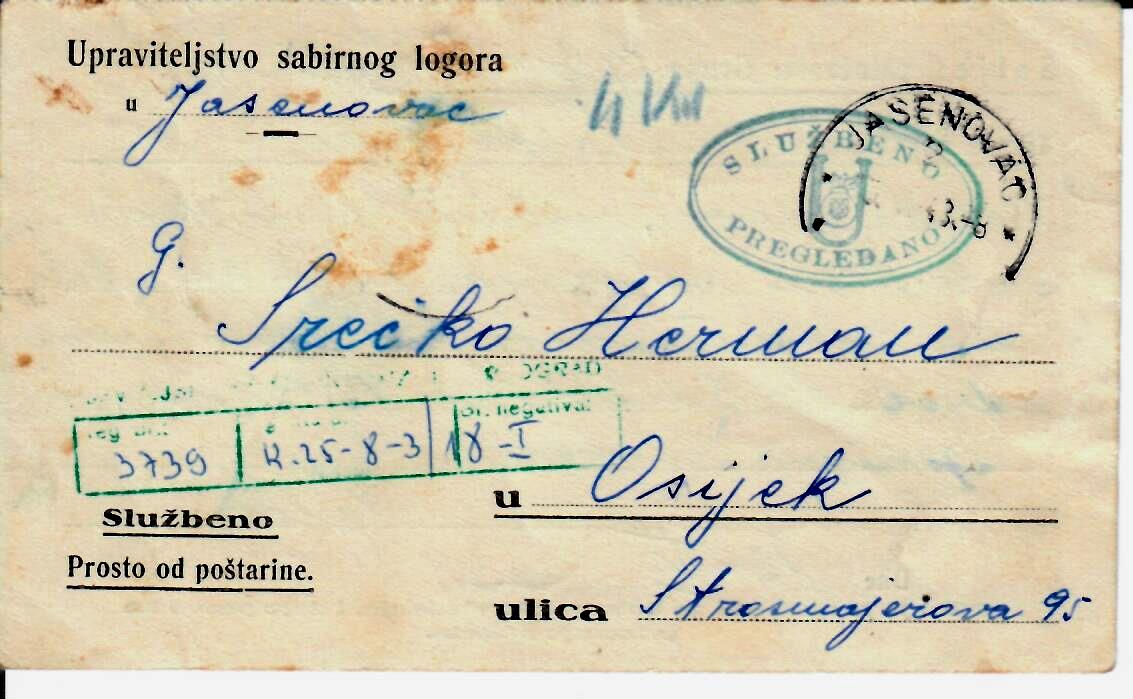 Upraviteljstvo sabirnog logora
u Jasenovac
4 Kn
SLUŽBENO
U
PREGLEDANO
JASENOVAC
2
43.-8
g.
Srećko Herman
OGRAD
br. negativa:
3739 K.25-8-3 18-I
u Osijek
Službeno
Prosto od poštarine.
ulica Strosmajerova 95